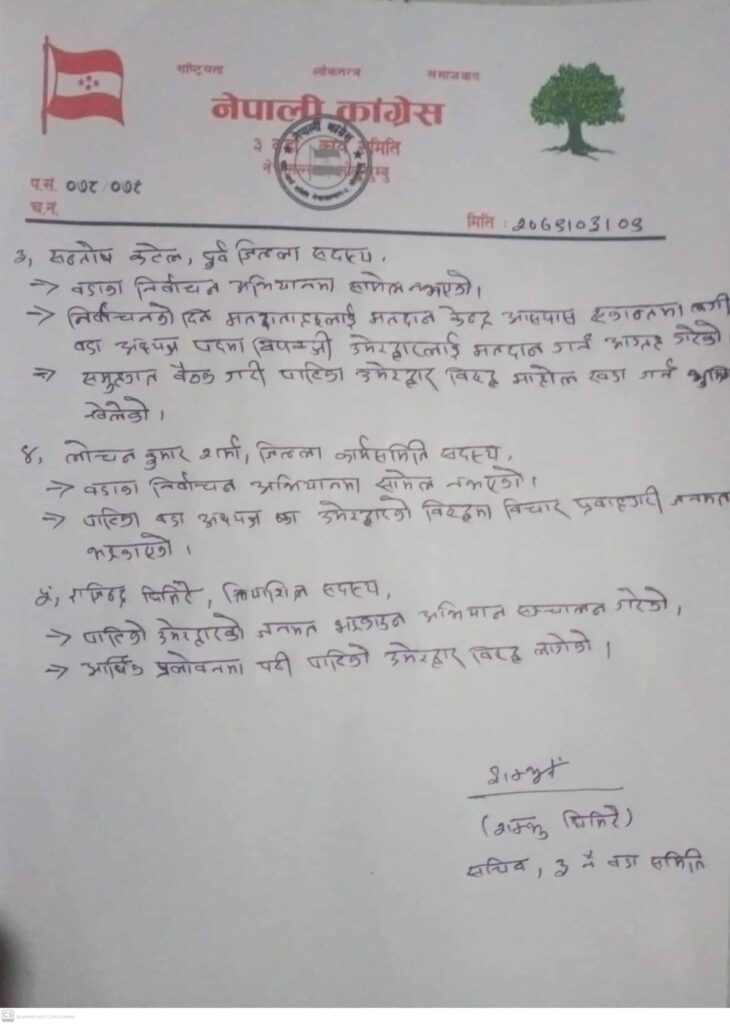 राष्ट्रियता लोकतन्त्र समाजवाद
नेपाली कांग्रेस
३ वडा कार्य समिति
प.सं. ०७८/०७९
च.नं.
मिति : २०७९।०३।०९
३, सन्तोष कटेल, पुर्व जिल्ला सदस्य,
→ वडाका निर्वाचन अभियानमा सामेल नभएको।
→ निर्वाचनको दिन मतदाताहरुलाई मतदान केन्द्र आसपास एकान्तमा लगी
वडा अध्यक्ष पदमा विपक्षी उमेद्वारलाई मतदान गर्न आग्रह गरेको
→ समुहगत बैठक गरी पार्टिका उमेद्वार विरुद्ध माहोल खडा गर्न भुमि
खेलेको।
४, लोचन कुमार शर्मा, जिल्ला कार्यसमिति सदस्य,
→ वडाका निर्वाचन अभियानमा सामेल नभएको।
→ पार्टिका वडा अध्यक्ष का उमेद्वारको विरुद्धमा विचार प्रवाह गरी जनमत
भड्काएको।
५, राजेन्द्र घिमिरे, क्रियाशिल सदस्य,
→ पार्टिको उमेद्वारको जनमत भड्काउन अभियान सञ्चालन गरेको,
→ आर्थिक प्रलोभनमा परी पार्टिको उमेद्वार विरुद्ध लागेको।
(शम्भु घिमिरे)
सचिव, ३ नं वडा समिति
CS Scanned with CamScanner